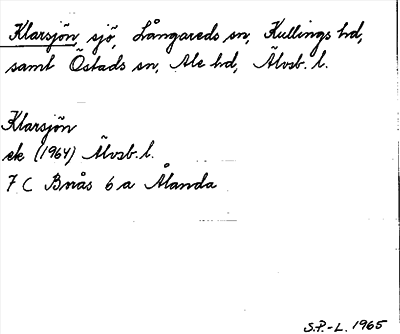 Klarsjön, sjö, Långareds sn, Kullings hd,
samt Östads sn, Ale hd, Älvsb. l.
Klarsjön
ek (1964) Älvsb. l.
7 C Borås 6 a Ålanda
S.P.-L. 1965